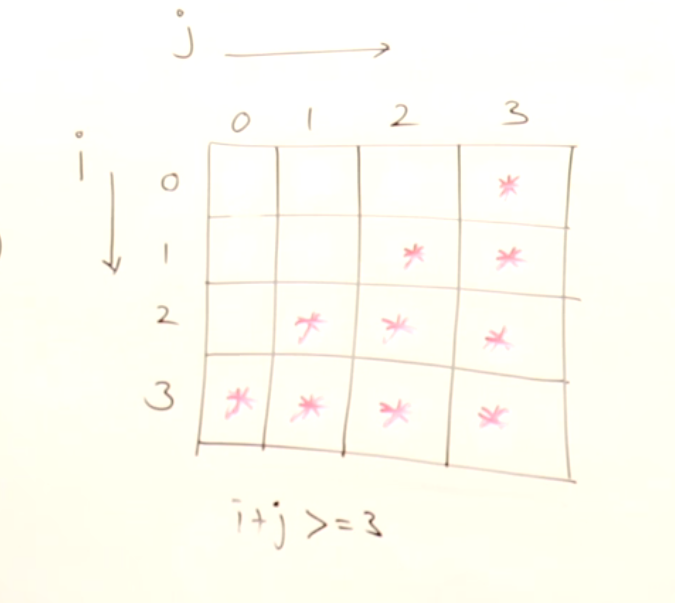 j
0 1 2 3
i
0 *
1 * *
2 * * *
3 * * * *
i+j >=3